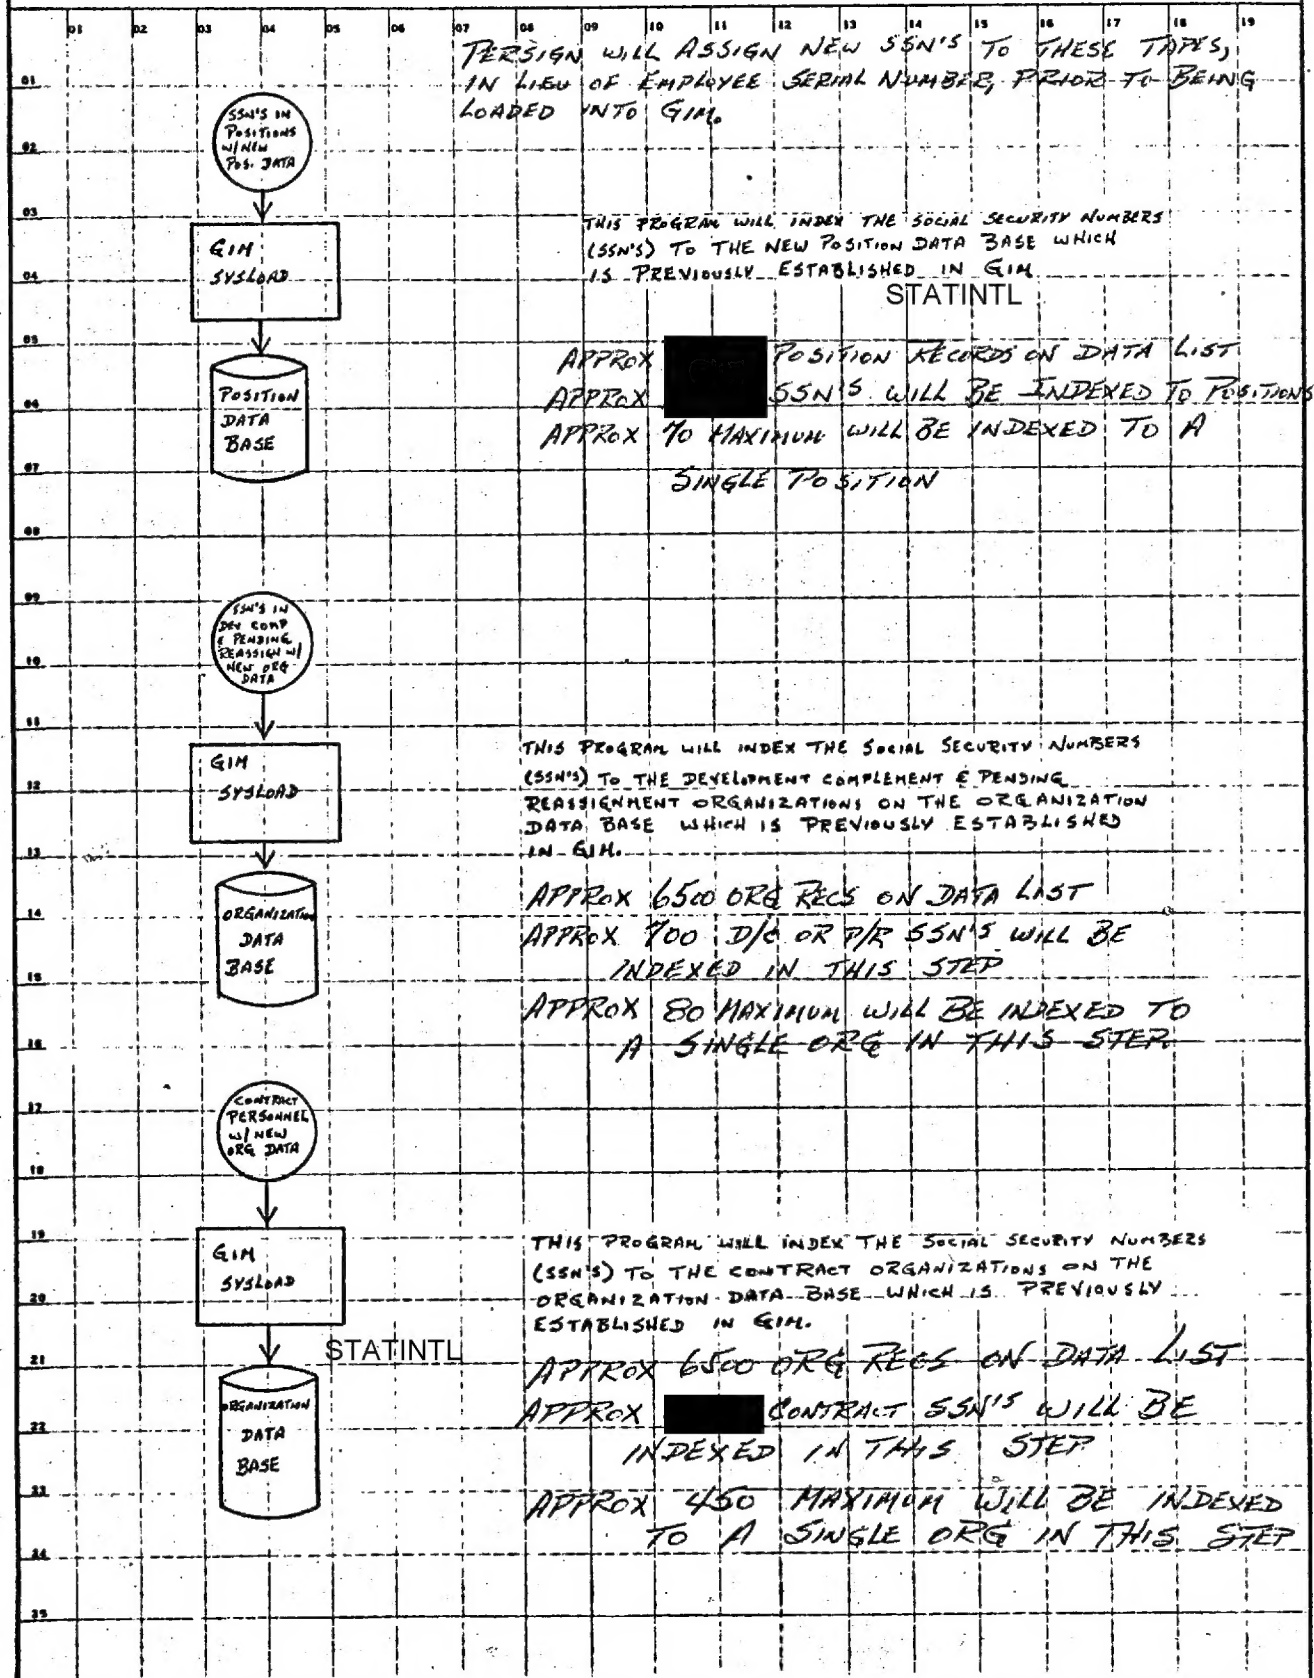 01 02 03 04 05 06 07 08 09 10 11 12 13 14 15 16 17 18 19
PERSIGN WILL ASSIGN NEW SSN'S TO THESE TAPES,
IN LIEU OF EMPLOYEE SERIAL NUMBER, PRIOR TO BEING
LOADED INTO GIM.
01
SSN'S IN
POSITIONS
W/NEW
POS. DATA
02
03
GIM
SYSLOAD
04
THIS PROGRAM WILL INDEX THE SOCIAL SECURITY NUMBERS
(SSN'S) TO THE NEW POSITION DATA BASE WHICH
IS PREVIOUSLY ESTABLISHED IN GIM
STATINTL
05
POSITION
DATA
BASE
06
07
APPROX POSITION RECORDS ON DATA LIST
APPROX SSN'S WILL BE INDEXED TO POSITIONS
APPROX 70 MAXIMUM WILL BE INDEXED TO A
SINGLE POSITION
08
09
SSN'S IN
DEV COMP
& PENDING
REASSIGN W/
NEW ORG
DATA
10
11
GIM
SYSLOAD
12
THIS PROGRAM WILL INDEX THE SOCIAL SECURITY NUMBERS
(SSN'S) TO THE DEVELOPMENT COMPLEMENT & PENDING
REASSIGNMENT ORGANIZATIONS ON THE ORGANIZATION
DATA BASE WHICH IS PREVIOUSLY ESTABLISHED
IN GIM.
13
ORGANIZATION
DATA
BASE
14
15
APPROX 6500 ORG RECS ON DATA LIST
APPROX 700 D/C OR P/R SSN'S WILL BE
INDEXED IN THIS STEP
APPROX 80 MAXIMUM WILL BE INDEXED TO
A SINGLE ORG IN THIS STEP.
16
17
CONTRACT
PERSONNEL
W/ NEW
ORG DATA
18
19
GIM
SYSLOAD
20
THIS PROGRAM WILL INDEX THE SOCIAL SECURITY NUMBERS
(SSN'S) TO THE CONTRACT ORGANIZATIONS ON THE
ORGANIZATION DATA BASE WHICH IS PREVIOUSLY
ESTABLISHED IN GIM.
STATINTL
21
ORGANIZATION
DATA
BASE
22
23
APPROX 6500 ORG RECS ON DATA LIST
APPROX CONTRACT SSN'S WILL BE
INDEXED IN THIS STEP
APPROX 450 MAXIMUM WILL BE INDEXED
TO A SINGLE ORG IN THIS STEP
24
25